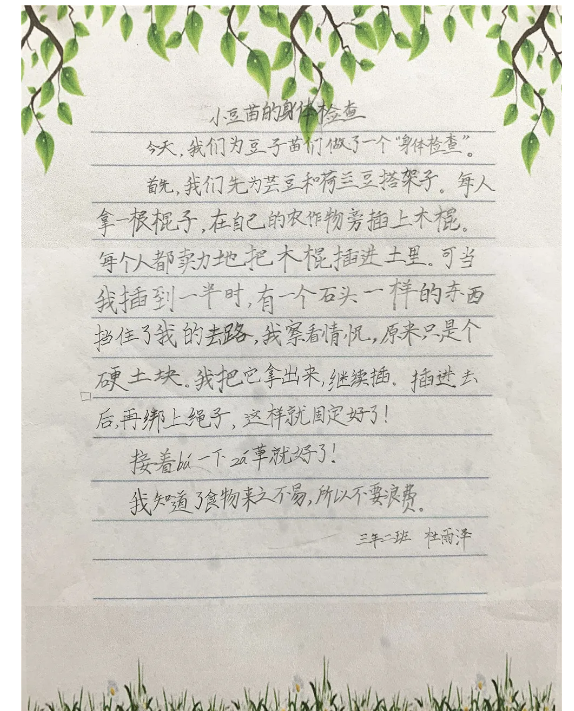 小豆苗的身体检查
今天,我们为豆子苗们做了一个“身体检查”。
首先,我们先为芸豆和荷兰豆搭架子。每人
拿一根棍子,在自己的农作物旁插上木棍。
每个人都卖力地把木棍插进土里。可当
我插到一半时,有一个石头一样的东西
挡住了我的去路,我察看情况,原来只是个
硬土块。我把它拿出来,继续插。插进去
后,再绑上绳子,这样就固定好了!
接着bá一下zá草就好了!
我知道了食物来之不易,所以不要浪费。
三年二班 杜雨泽